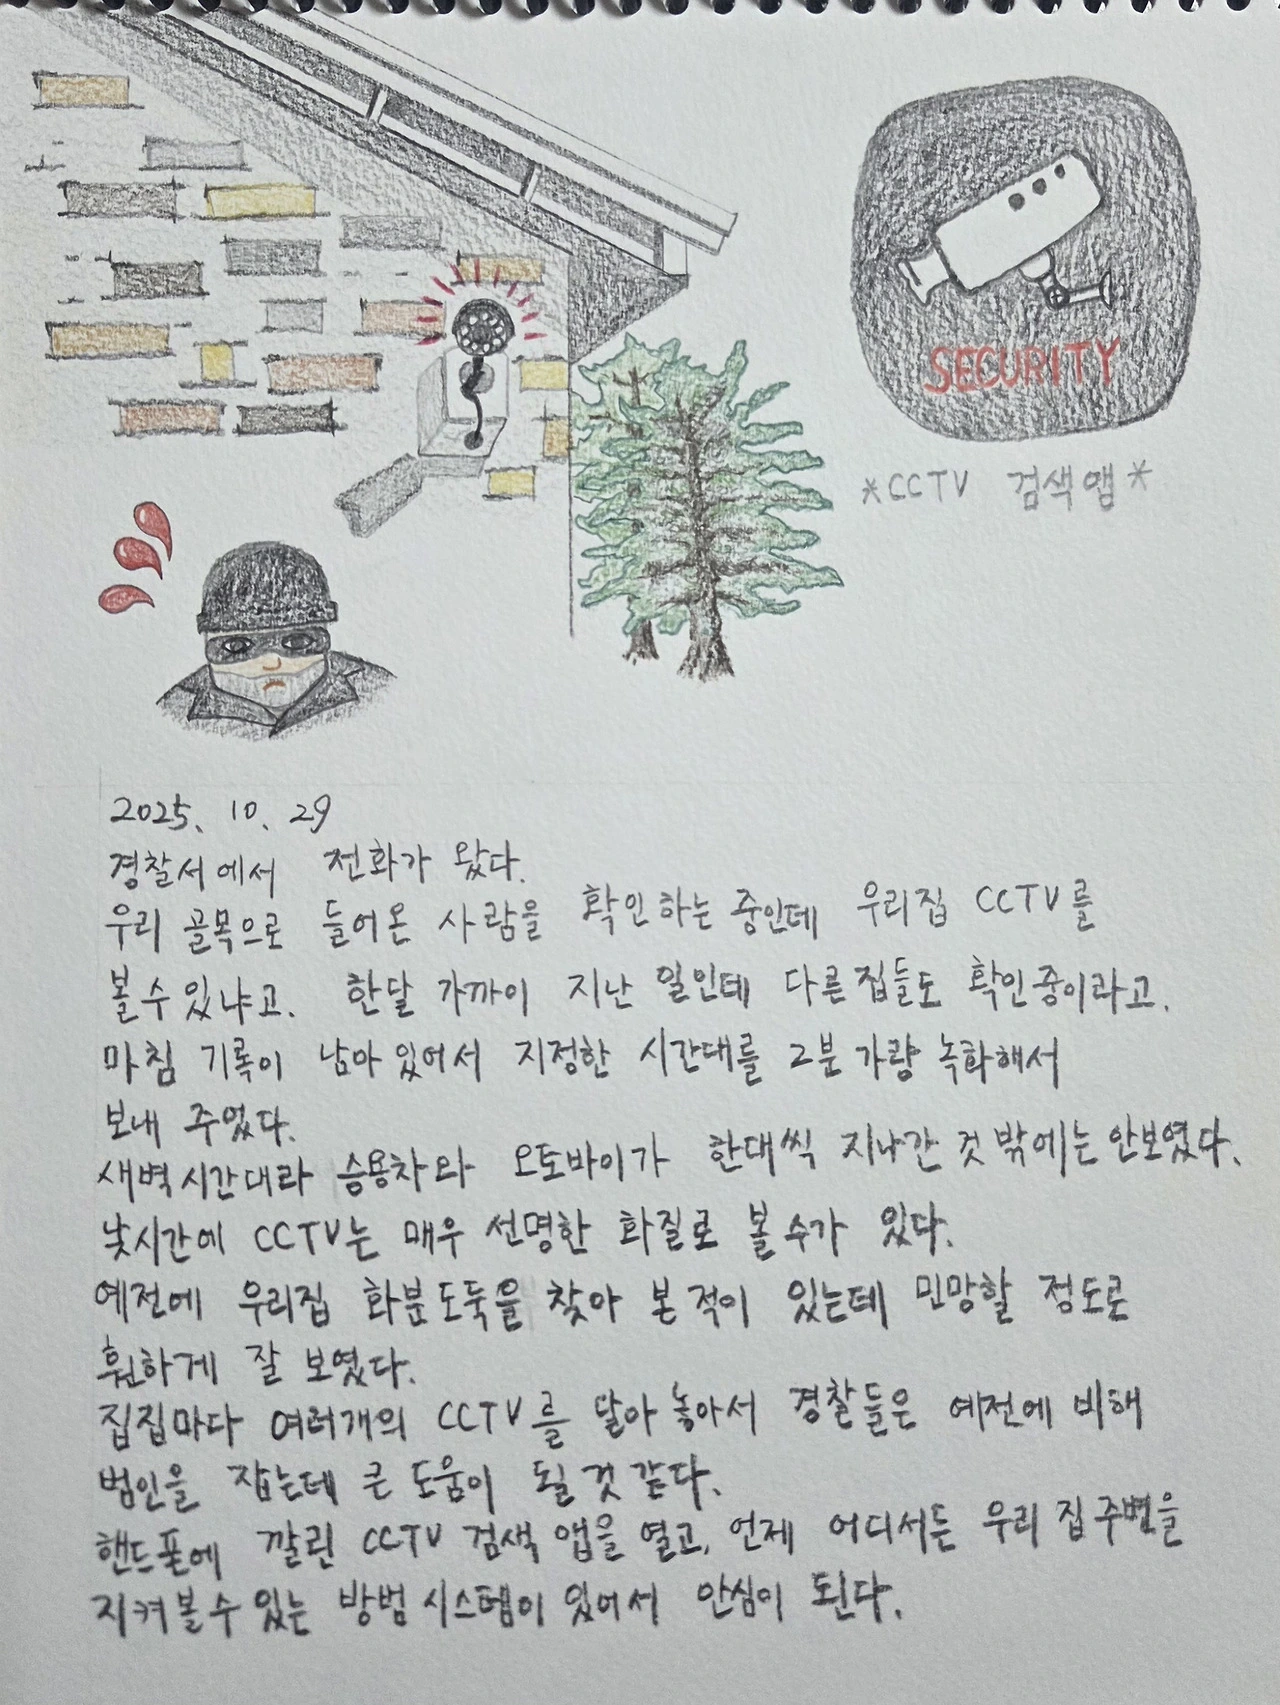 SECURITY
*CCTV 검색앱*
2025. 10. 29
경찰서에서 전화가 왔다.
우리 골목으로 들어온 사람을 확인하는 중인데 우리집 CCTV를
볼 수 있냐고. 한달 가까이 지난 일인데 다른 집들도 확인중이라고.
마침 기록이 남아 있어서 지정한 시간대를 2분 가량 녹화해서
보내 주었다.
새벽시간대라 승용차와 오토바이가 한대씩 지나간 것 밖에는 안보였다.
낮시간에 CCTV는 매우 선명한 화질로 볼 수가 있다.
예전에 우리집 화분도둑을 찾아 본 적이 있는데 민망할 정도로
훤하게 잘 보였다.
집집마다 여러개의 CCTV를 달아 놓아서 경찰들은 예전에 비해
범인을 잡는데 큰 도움이 될 것 같다.
핸드폰에 깔린 CCTV 검색 앱을 열고, 언제 어디서든 우리 집 주변을
지켜 볼 수 있는 방범 시스템이 있어서 안심이 된다.